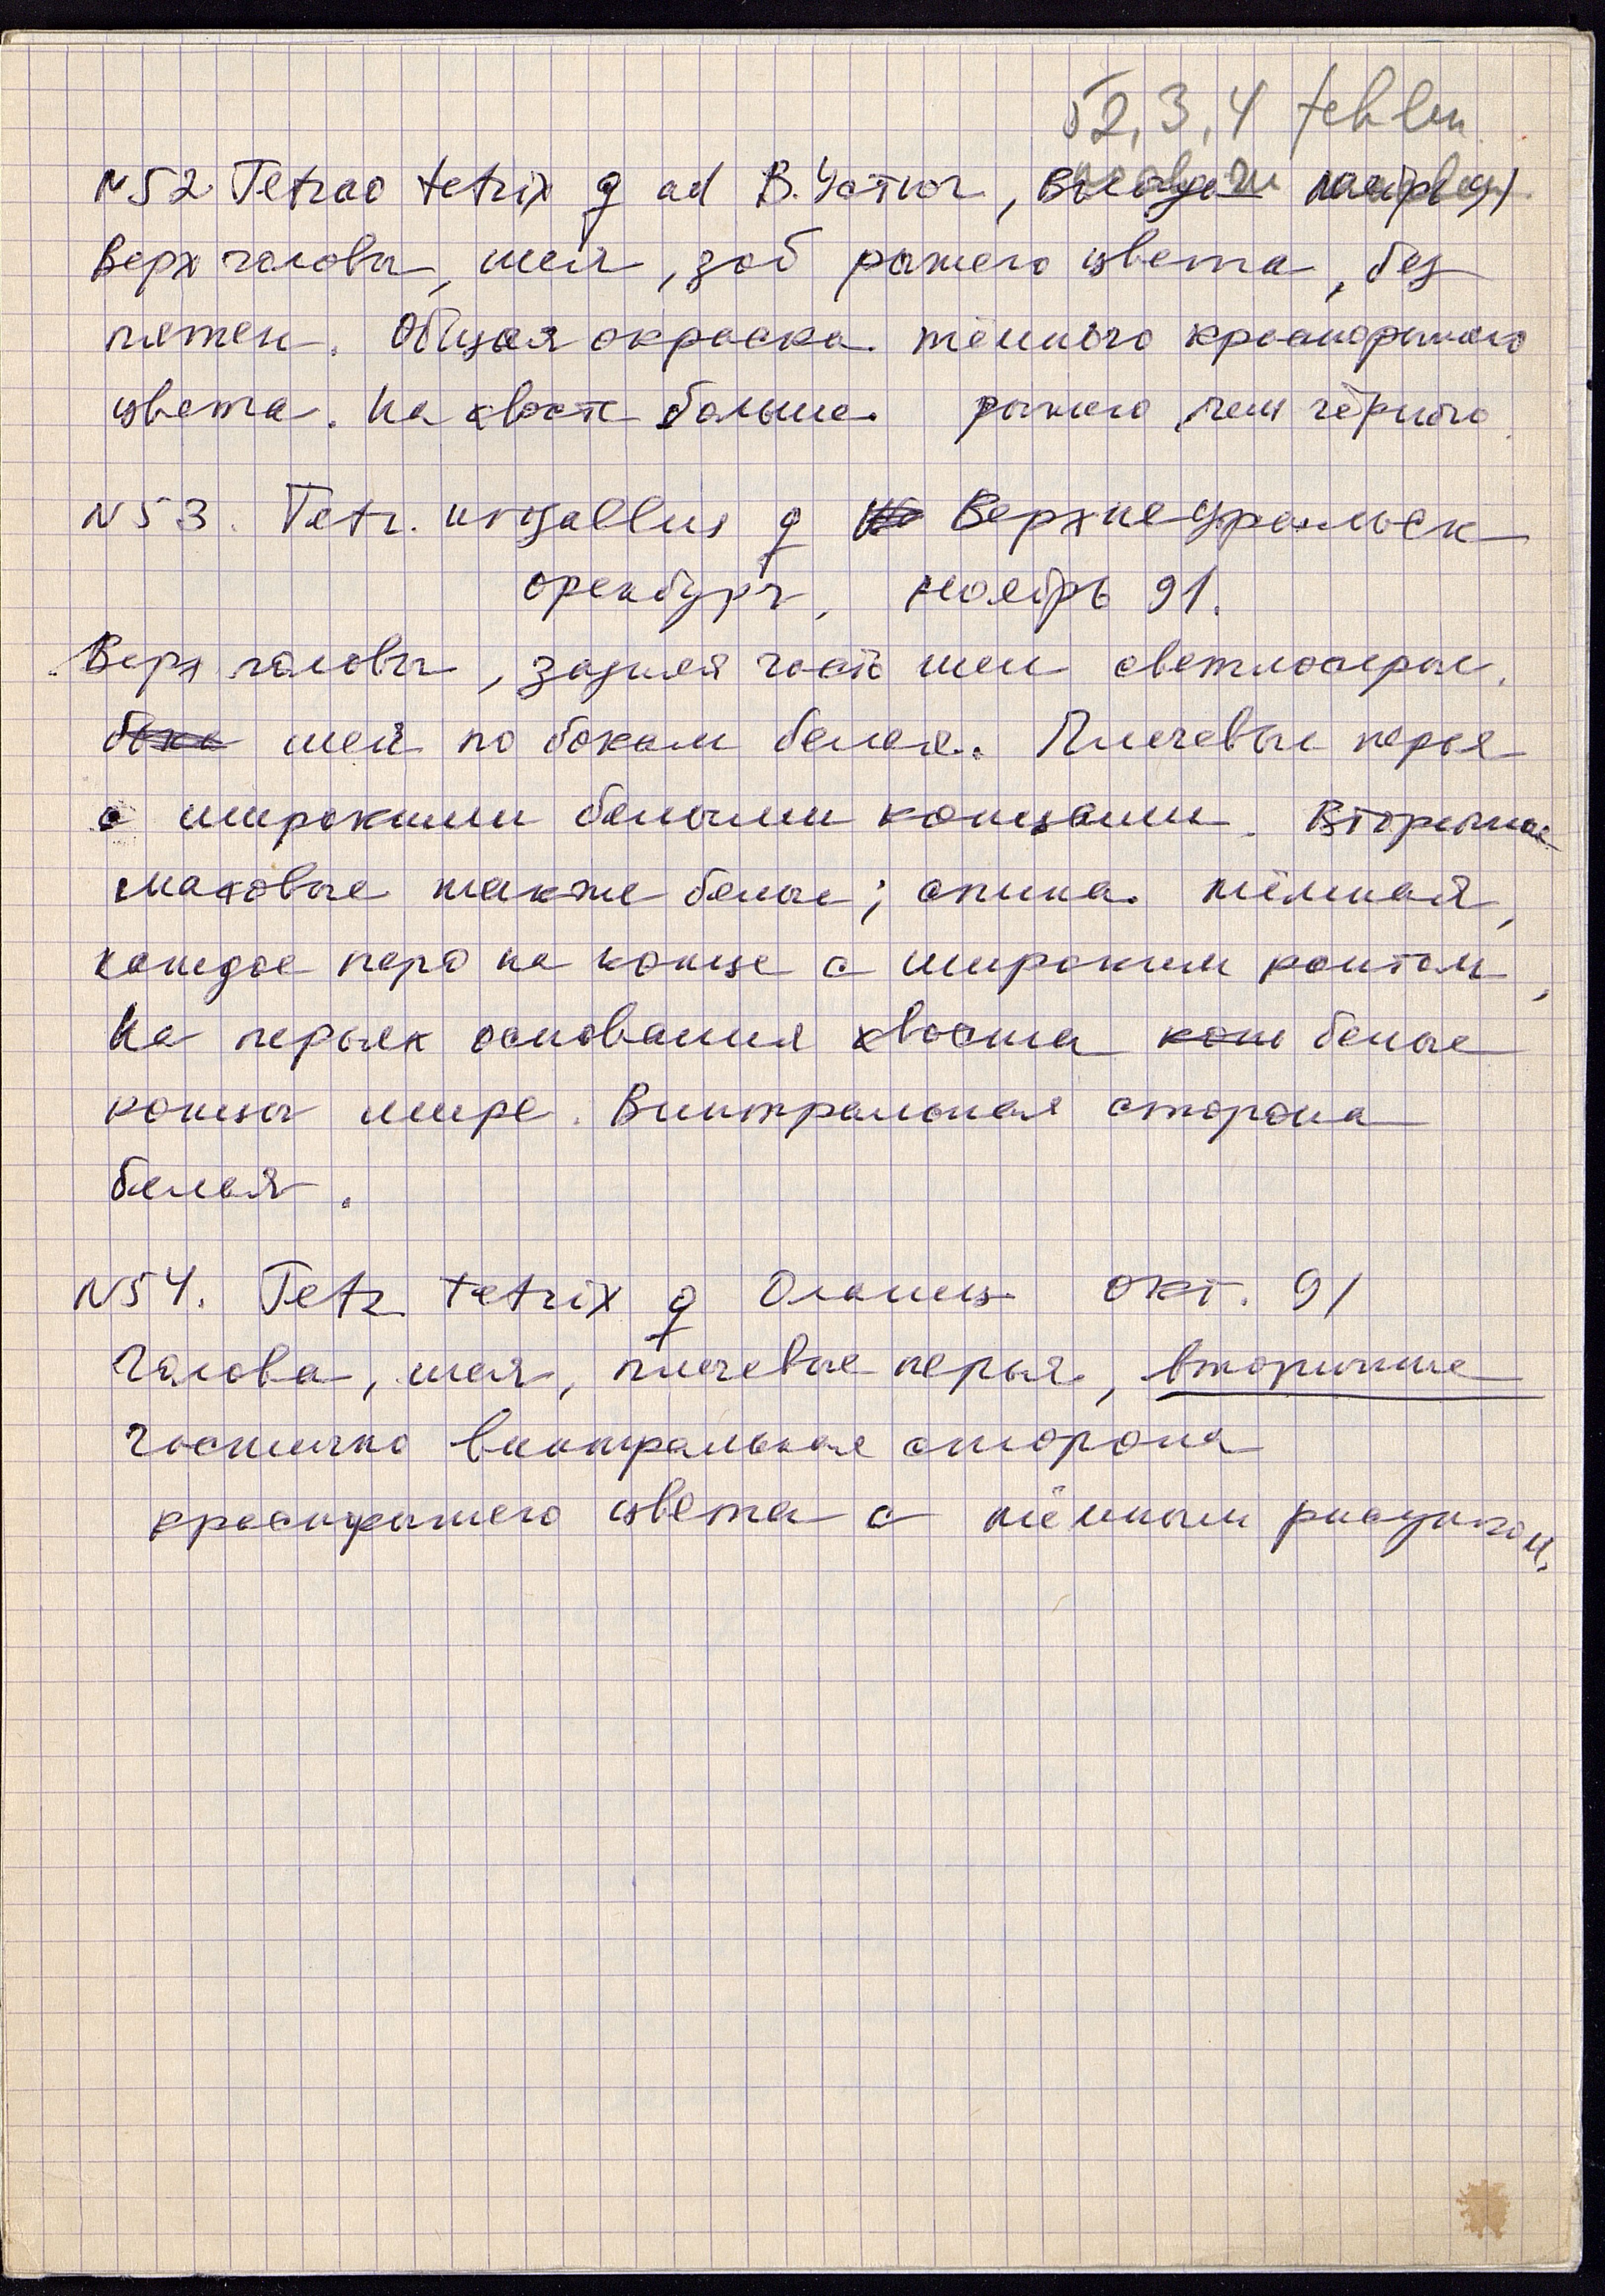 52, 3, 4 fehlen
N52 Tetrao tetrix ♀ ad В. Устюг, Вологда ноябрь 91
Верх головы, шея, зоб рыжего цвета, без
пятен. Общая окраска тёмного краснорыжего
цвета. На хвосте больше рыжего, чем чёрного.
N53. Tetr. urogallus ♀ Верхнеуральск
Оренбург, ноябрь 91.
Верх головы, задняя часть шеи светлосерые.
бока шея по бокам белая. Плечевые перья
с широкими белыми концами. Вторичные
маховые также белые; спина тёмная,
каждое перо на конце с широким кантом,
На перьях основания хвоста кон белые
концы шире. Винтральная сторона
белая.
N54. Tetr tetrix ♀ Олонец окт. 91
Голова, шея, плечевые перья, вторичные
частично винтральная сторона
краснорыжего цвета с тёмным рисунком.